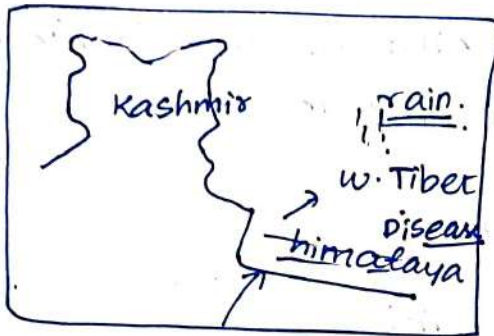 Kashmir
rain.
W. Tibet
Disease
himalaya